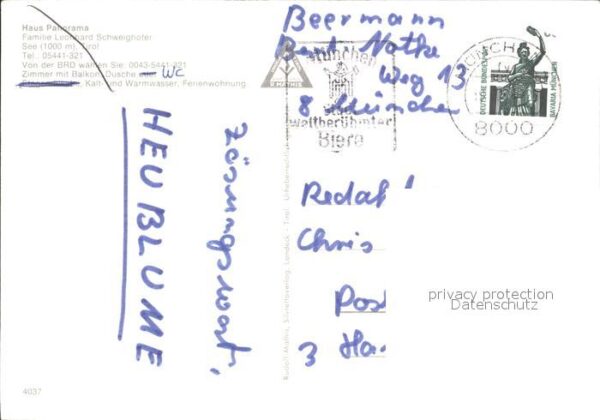 Haus Panorama
Familie Leonhard Schweighofer
See (1000 m), Tirol
Tel. 05441-321
Von der BRD wählen Sie 0043-5441-321
Zimmer mit Balkon, Dusche WC
Kalt- und Warmwasser, Ferienwohnung
Lösungswort:
HEUBLUME
4037
Rudolf Mathis, Silvrettaverlag, Landeck - Tirol
MATHIS
Beermann
Bernt Notke
Weg 13
8 München
München
Stadt
weltberühmter
Biere
MÜNCHEN
8000
DEUTSCHE BUNDESPOST
BAVARIA MÜNCHEN
Redak
Chris
Post
3 Han
privacy protection
Datenschutz